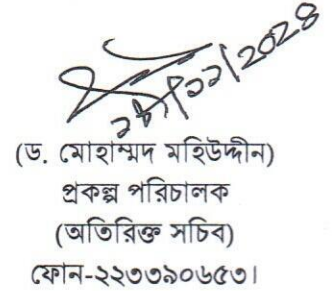 ২৮/১১/২০২৪
(ড. মোহাম্মদ মহিউদ্দীন)
প্রকল্প পরিচালক
(অতিরিক্ত সচিব)
ফোন-২২৩৩৯০৬৫৩।